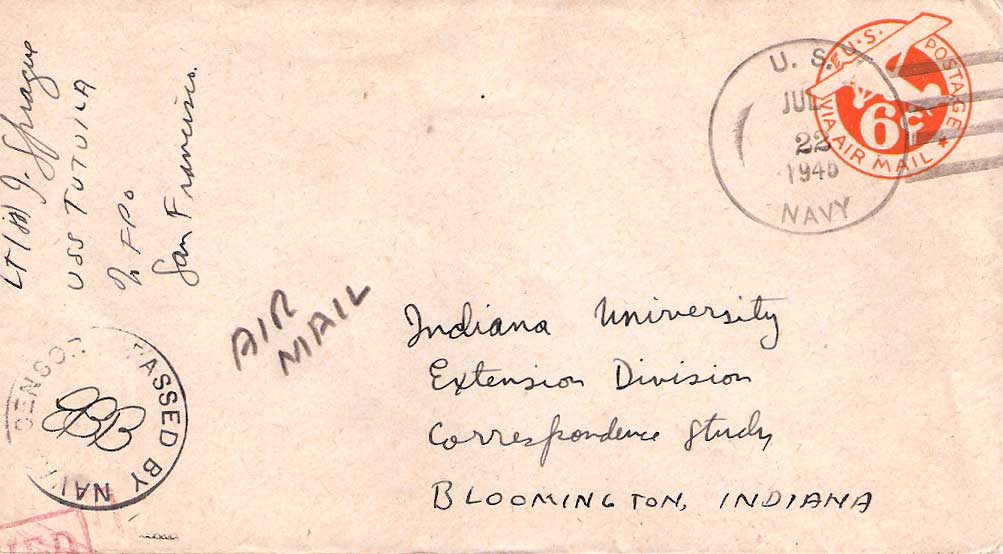 Lt (jg) J. Sprague
USS TUTUILA
% FPO
San Francisco.
U.S.
JUL
22
1945
NAVY
U.S. POSTAGE
6¢
VIA AIR MAIL
AIR
MAIL
Indiana University
Extension Division
Correspondence Study
BLOOMINGTON, INDIANA
PASSED BY NAVAL CENSOR